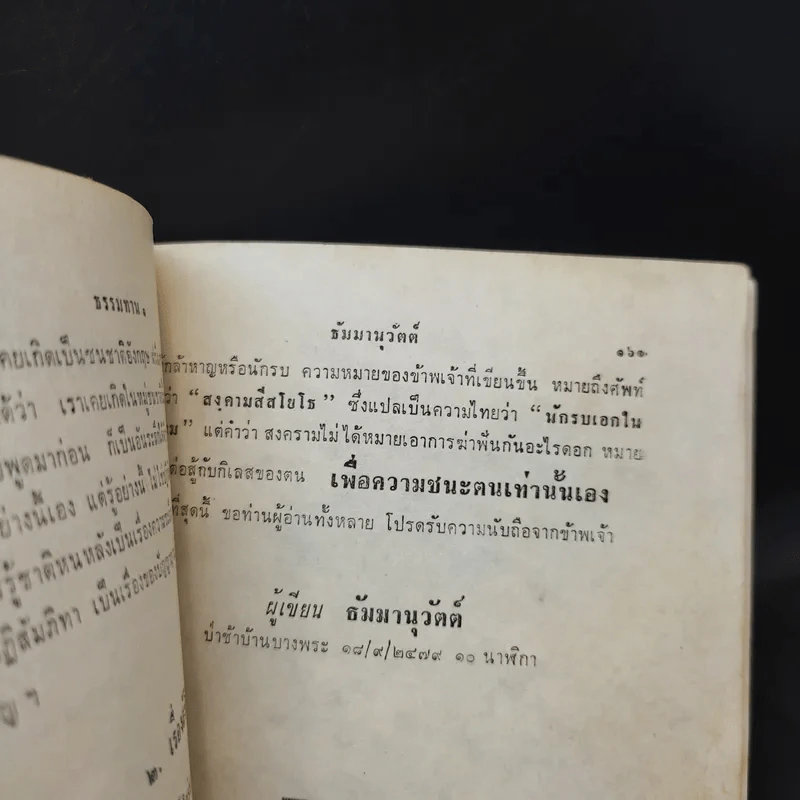 ธรรมทาน.
เคยเกิดเป็นชนชาติอังกฤษ
ได้ว่า เราเคยเกิดในหมู่
พูดมาก่อน ก็เป็นอันระลึกได้
อย่างนี้เอง แต่รู้อย่างนี้ ไม่ใช่
รู้ชาติหนหลังเป็นเรื่อง
ปฏิสัมภิทา เป็นเรื่องของ
ญ ฯ
๒. เรื่อง
ธัมมานุวัตต์ ๑๖๑
กล้าหาญหรือนักรบ ความหมายของข้าพเจ้าที่เขียนขึ้น หมายถึงศัพท์
ว่า “ สงฺคามสีสโยโธ ” ซึ่งแปลเป็นความไทยว่า “ นักรบเอกใน
” แต่คำว่า สงครามไม่ได้หมายเอาการฆ่าฟันกันอะไรดอก หมาย
ต่อสู้กับกิเลสของตน เพื่อความชนะตนเท่านั้นเอง
ที่สุดนี้ ขอท่านผู้อ่านทั้งหลาย โปรดรับความนับถือจากข้าพเจ้า
ผู้เขียน ธัมมานุวัตต์
ป่าช้าบ้านบางพระ ๑๘/๙/๒๔๗๙ ๑๐ นาฬิกา